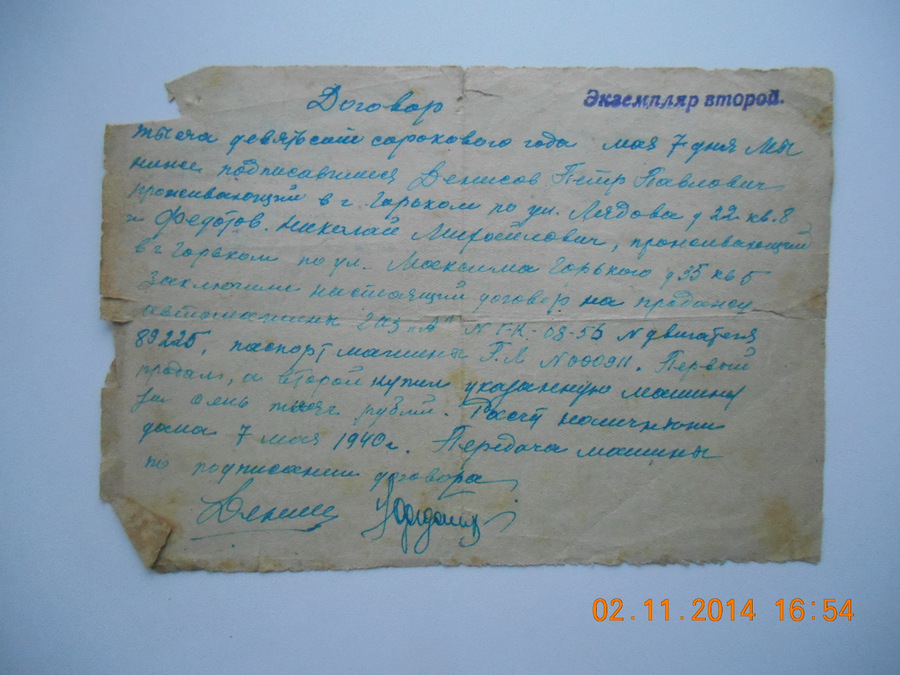 Договор
Экземпляр второй.
тысяча девятьсот сорокового года мая 7 дня Мы
ниже подписавшиеся Денисов Петр Павлович
проживающий в г. Горьком по ул. Лядова д 22 кв. 8
и Федотов Николай Михайлович, проживающий
в г Горьком по ул. Максима Горького д 35 кв 5
Заключили настоящий договор на продажу
автомашины ГАЗ "А" N Г-К-03-53 N двигателя
89225, паспорт машины N 090911. Первый
продал, а второй купил указанную машину
за семь тысяч рублей. Расчет наличными
дана 7 мая 1940 г. Передача машины
по подписании договора
02.11.2014 16:54